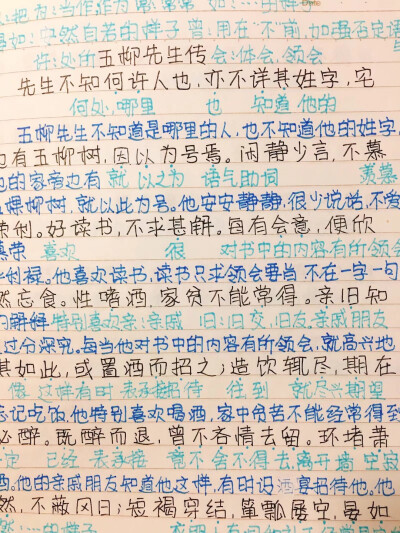 以:把 为:当作,作为 常常 如:…的样子
晏如:安然自若的样子 曾:用在"不"前,加强否定语
许:处所 五柳先生传 会:体会,领会
先生不知何许人也,亦不详其姓字,宅
何处,哪里 也 知道 他的
五柳先生不知道是哪里的人,也不知道他的姓字,
边有五柳树,因以为号焉。闲静少言,不慕
他的家旁边有 就 以之为 语气助词 羡慕
五棵柳树,就以此为号。他安安静静,很少说话,不爱
荣利。好读书,不求甚解。每有会意,便欣
慕荣 喜欢 很 对书中的内容有所领会
华利禄。他喜欢读书,读书只求领会要旨 不在一字一句
然忘食。性嗜酒,家贫不能常得。亲旧知
的解释 特别喜欢 亲:亲戚 旧:旧交,旧友,亲戚朋友
上过分深究。每当他对书中的内容有所领会,就高兴地
其如此,或置酒而招之;造饮辄尽,期在
像 这样 有时 表承接 招待 往,到 就 尽兴 期望
忘记吃饭,他特别喜欢喝酒,家中贫苦不能经常得到
必醉。既醉而退,曾不吝情去留。环堵萧
已经 表承接 竟不 舍不得 去,离开 墙 空寂
酒。他的亲戚朋友知道他这样,有时设酒宴招待他。他
然,不蔽风日;短褐穿结,箪瓢屡空,晏如
然:…的样子